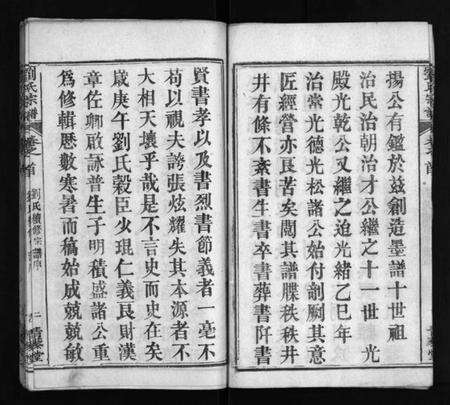 揚公有鑑於茲創造墨譜十世祖
治民治朝治才公繼之十一世光
殿光乾公又繼之迨光緒乙巳年
治常光德光松諸公始付剞劂其意
匠經營亦艮苦矣閱其譜牒秩秩井
井有條不紊書生書卒書葬書阡書
賢書孝以及書烈書節義者一毫不
苟以視夫誇張炫耀失其本源者不
大相天壤乎哉是不言史而史在矣
歲庚午劉氏穀臣少琨仁義艮財漢
章佐卿啟詠普生子明積盛諸公重
為修輯歷數寒暑而稿始成兢兢敏
劉氏宗譜
卷之首
劉氏續修宗譜序
二